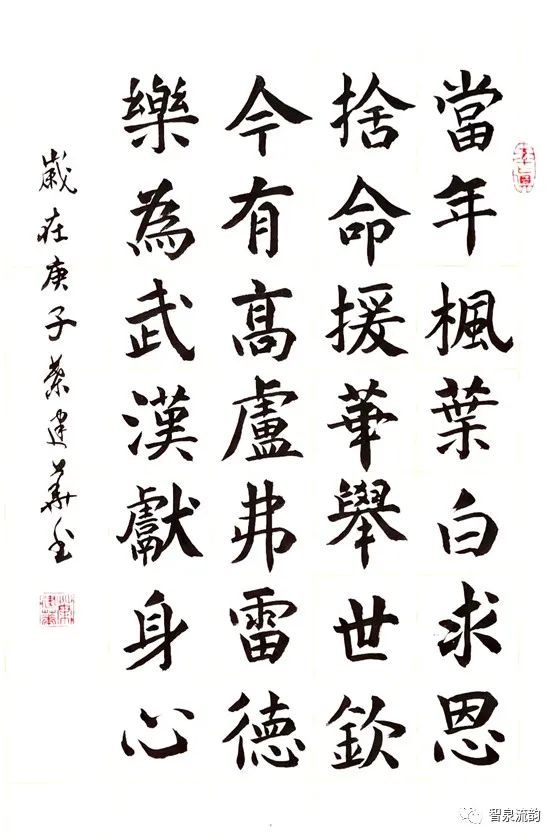 當年楓葉白求恩
捨命援華舉世欽
今有高盧弗雷德
樂為武漢獻身心
歲在庚子葉建華書
智泉流韵